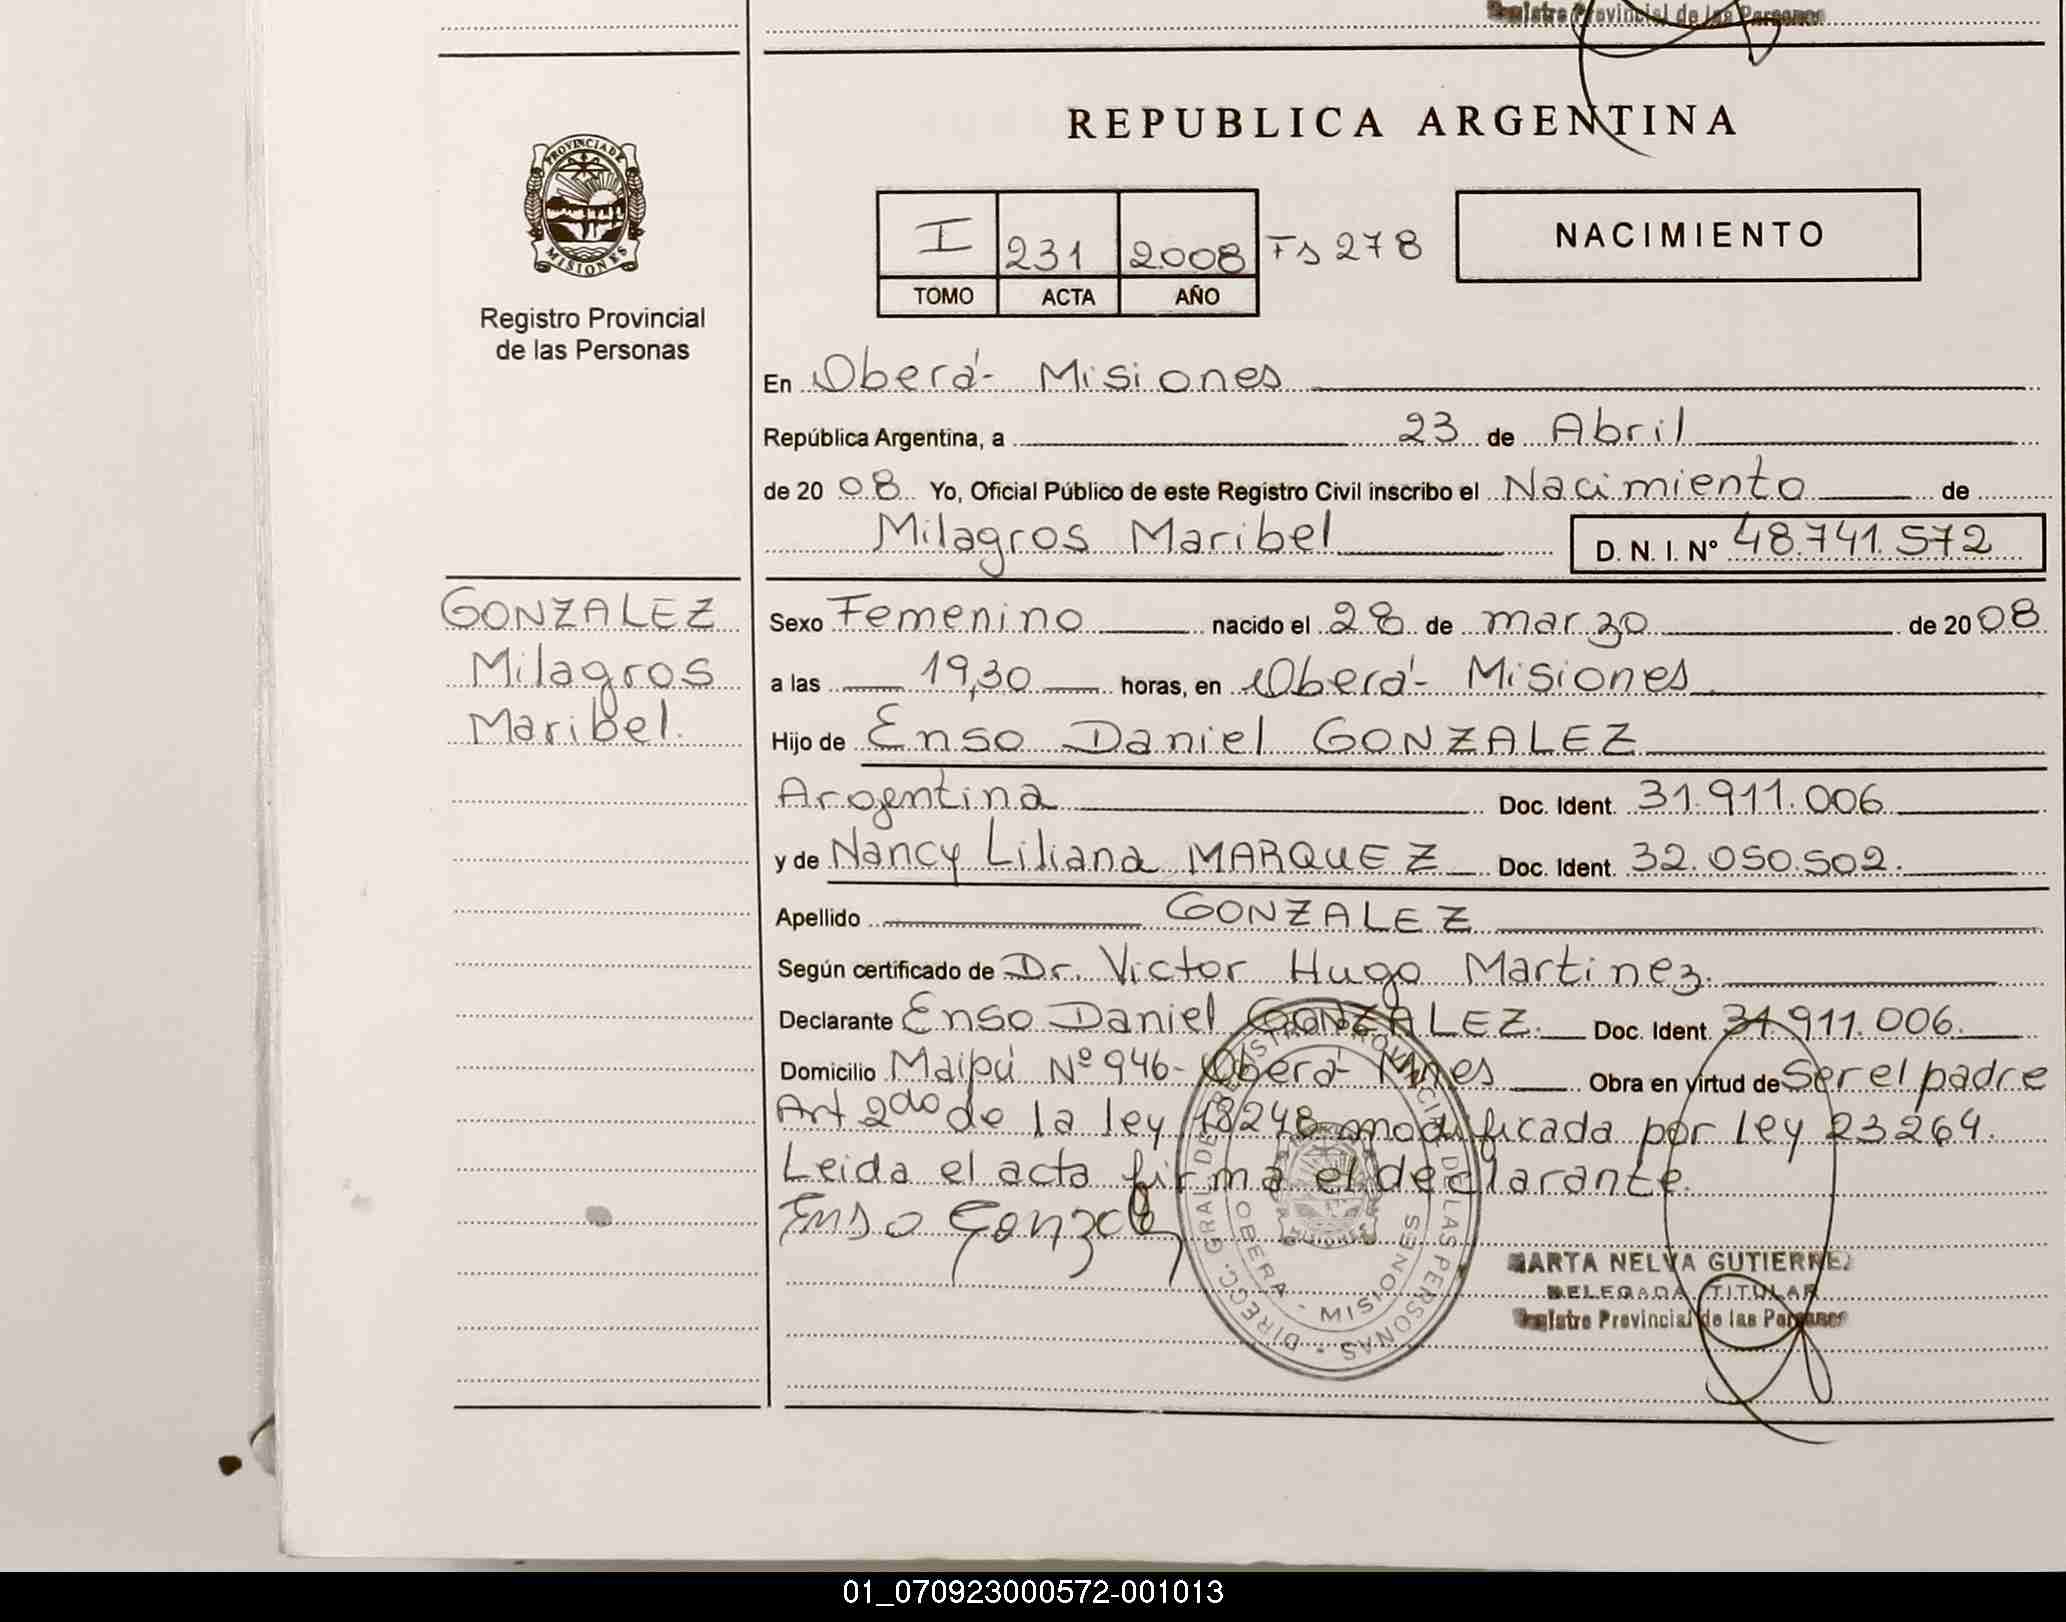 Registro Provincial de las Personas
REPUBLICA ARGENTINA
PROVINCIA DE
MISIONES
Registro Provincial
de las Personas
I 231 2008 Fs 278
TOMO ACTA AÑO
NACIMIENTO
En Oberá - Misiones
República Argentina, a 23 de Abril
de 20 08 Yo, Oficial Público de este Registro Civil inscribo el Nacimiento de
Milagros Maribel D. N. I. Nº 48.741.572
GONZALEZ
Milagros
Maribel.
Sexo Femenino nacido el 28 de marzo de 20 08
a las 19,30 horas, en Oberá - Misiones
Hijo de Enso Daniel GONZALEZ
Argentina Doc. Ident. 31.911.006
y de Nancy Liliana MARQUEZ Doc. Ident. 32.050.502.
Apellido GONZALEZ
Según certificado de Dr. Victor Hugo Martinez.
Declarante Enso Daniel GONZALEZ. Doc. Ident. 31.911.006.
Domicilio Maipú Nº 946 - Oberá - Mnes Obra en virtud de Ser el padre
Art 2do de la ley 18248 modificada por ley 23264.
Leida el acta firma el declarante.
Enso Gonzalez
DIRECC. GRAL. DE REGISTRO PROVINCIAL DE LAS PERSONAS
OBERA - MISIONES
MISIONES
MARTA NELVA GUTIERREZ
DELEGADA TITULAR
Registro Provincial de las Personas
01_070923000572-001013